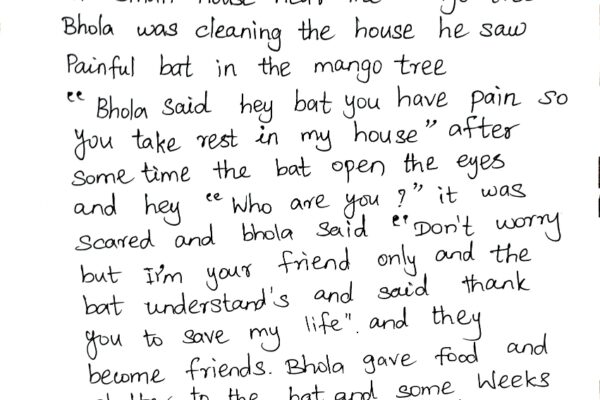 house near the
Bhola was cleaning the house he saw
Painful bat in the mango tree
“ Bhola said hey bat you have pain so
you take rest in my house” after
some time the bat open the eyes
and hey “ Who are you ?” it was
scared and bhola said “ Don't worry
but I'm your friend only and the
bat understand's and said thank
you to save my life". and they
become friends. Bhola gave food and
to the bat and some Weeks